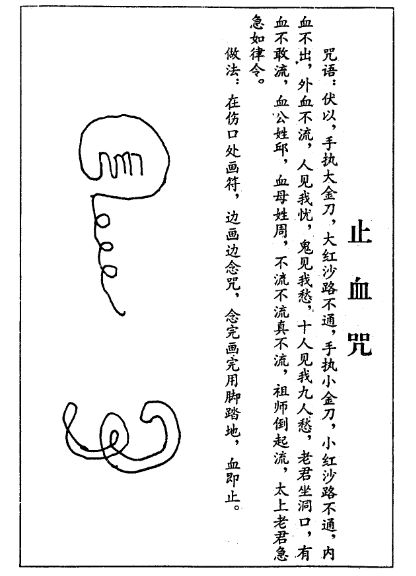 止血咒
咒语：伏以，手执大金刀，大红沙路不通，手执小金刀，小红沙路不通，内
血不出，外血不流，人见我忧，鬼见我愁，十人见我九人愁，老君坐洞口，有
血不敢流，血公姓邱，血母姓周，不流不流真不流，祖师倒起流，太上老君急
急如律令。
做法：在伤口处画符，边画边念咒，念完画完用脚踏地，血即止。